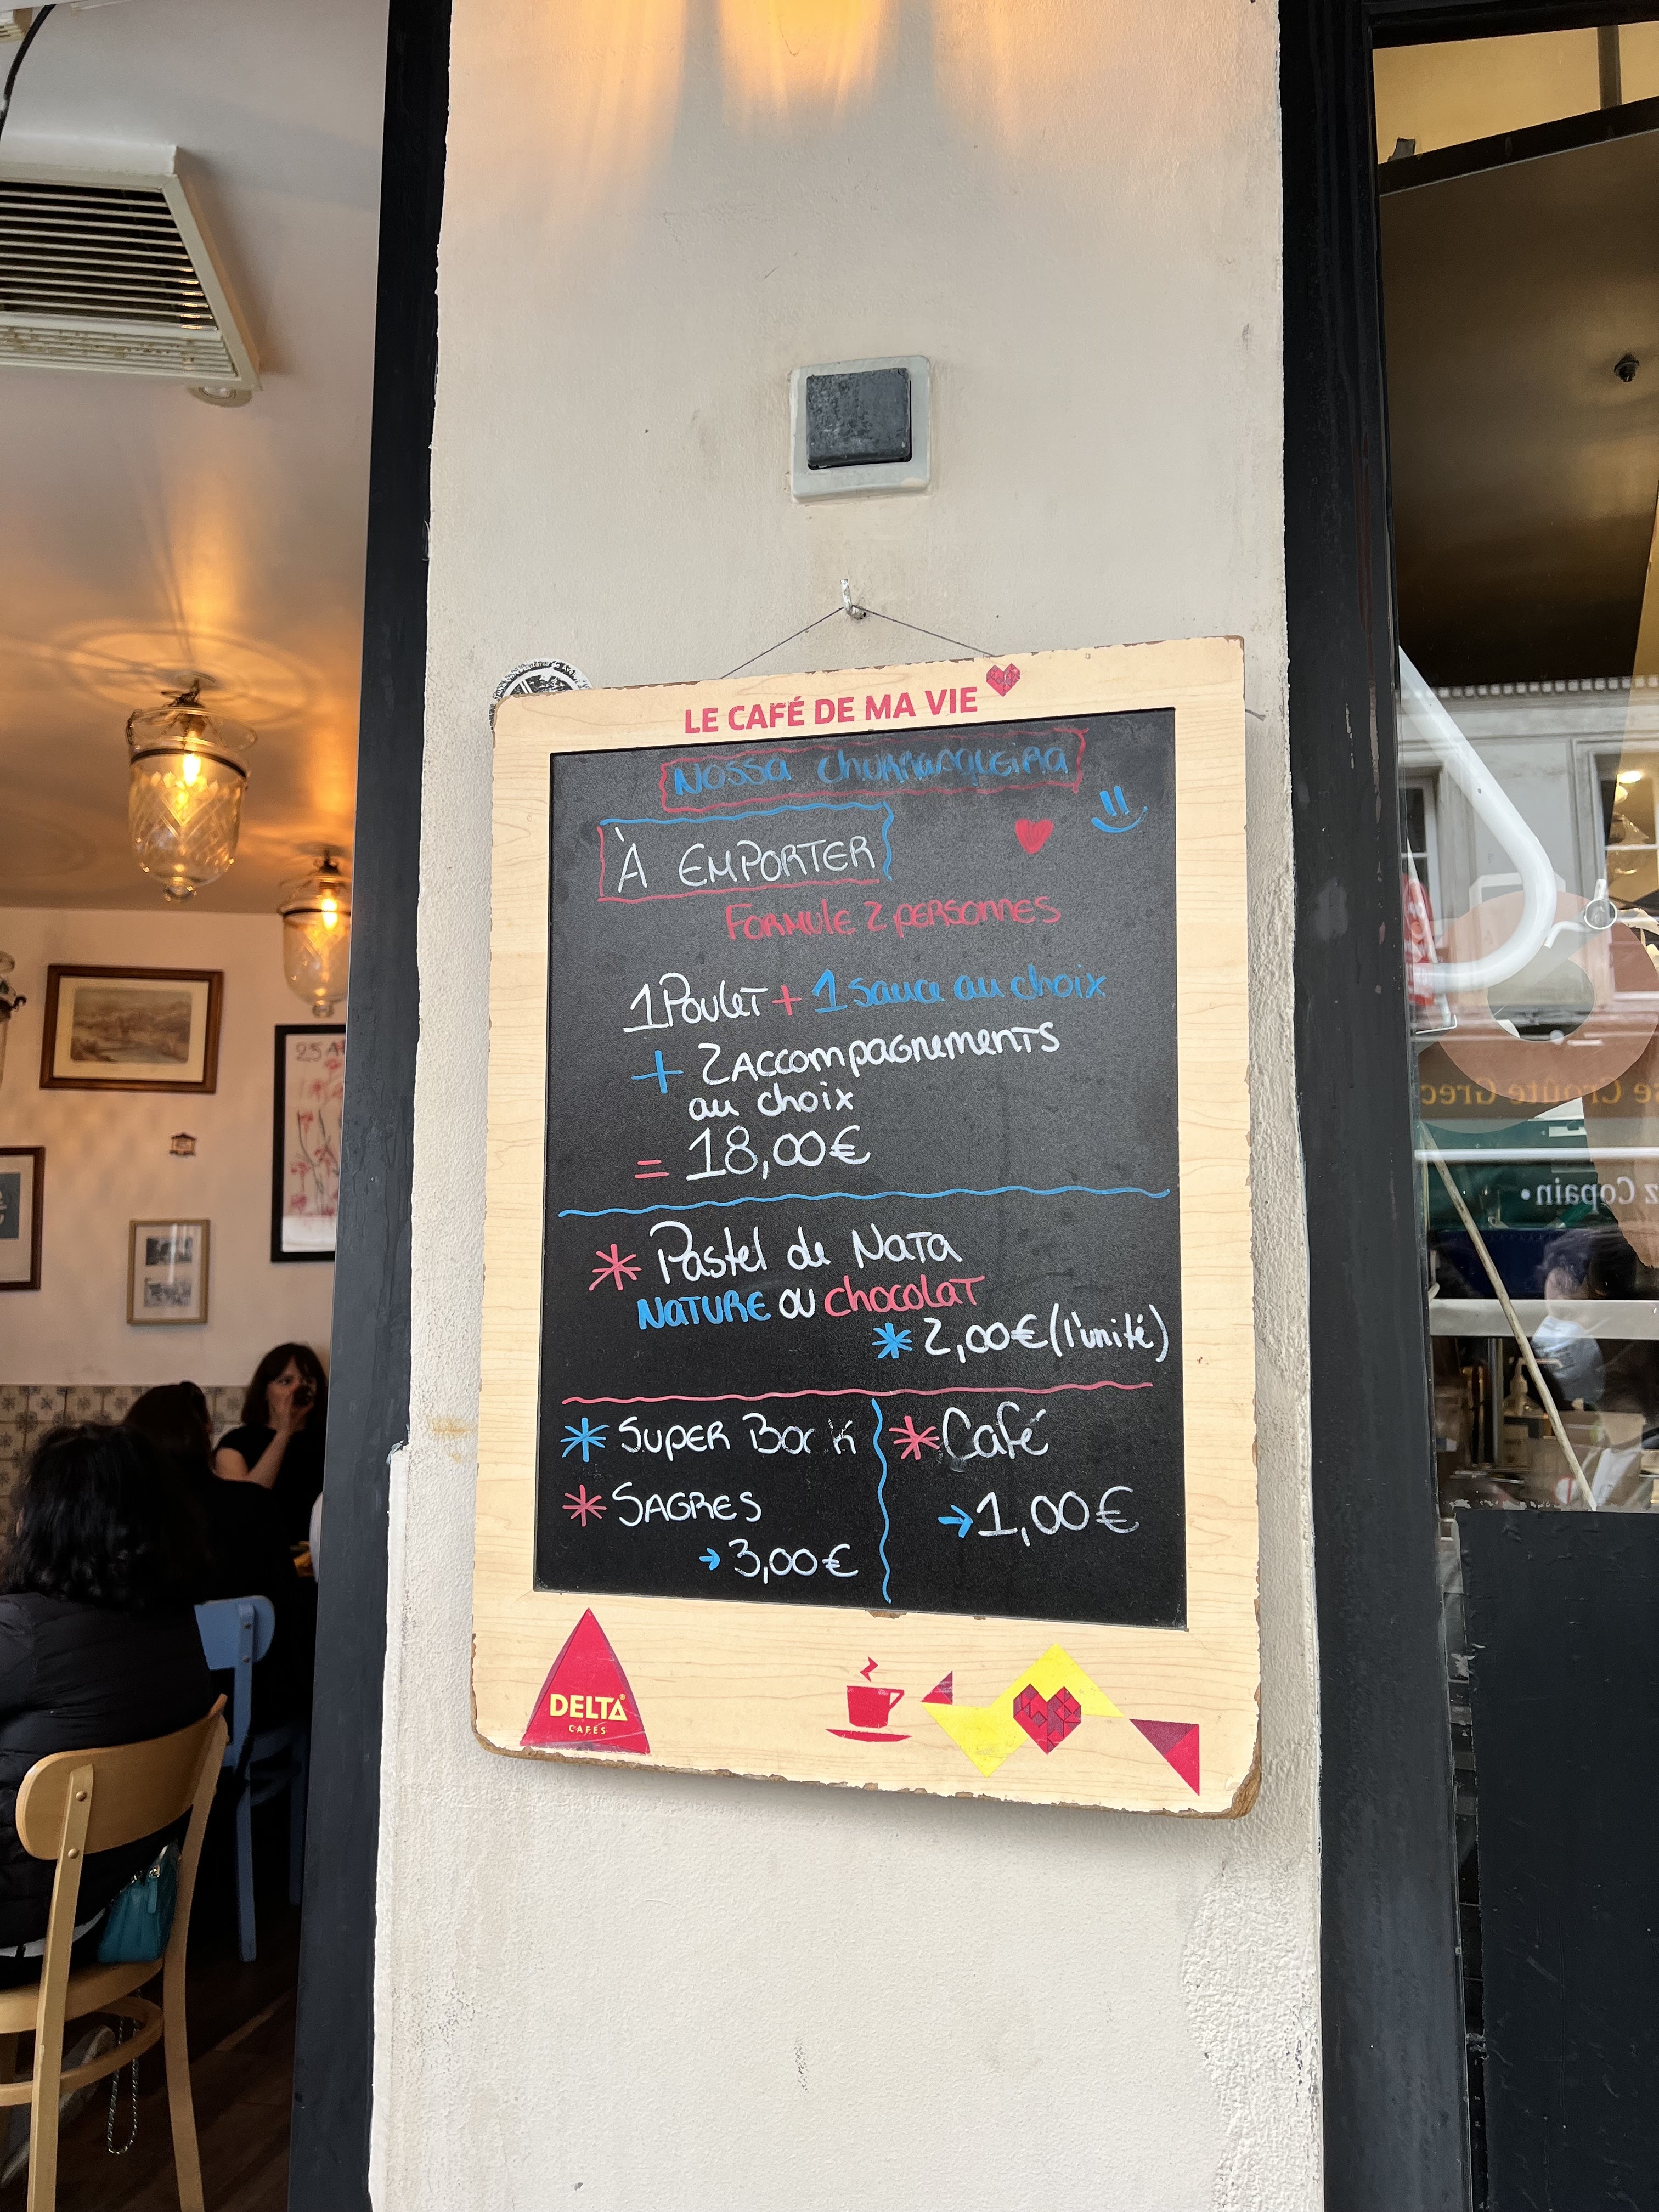 LE CAFÉ DE MA VIE
Nossa Churrasqueira
À EMPORTER
FORMULE 2 PERSONNES
1 Poulet + 1 sauce au choix
+ 2 Accompagnements
au choix
= 18,00€
* Pastel de Nata
NATURE OU chocolat
* 2,00€ (l'unité)
* SUPER Bock
* SAGRES
→ 3,00€
* Café
→ 1,00€
DELTA
CAFÉS
25 A
se Croûte Grec
z Copain •